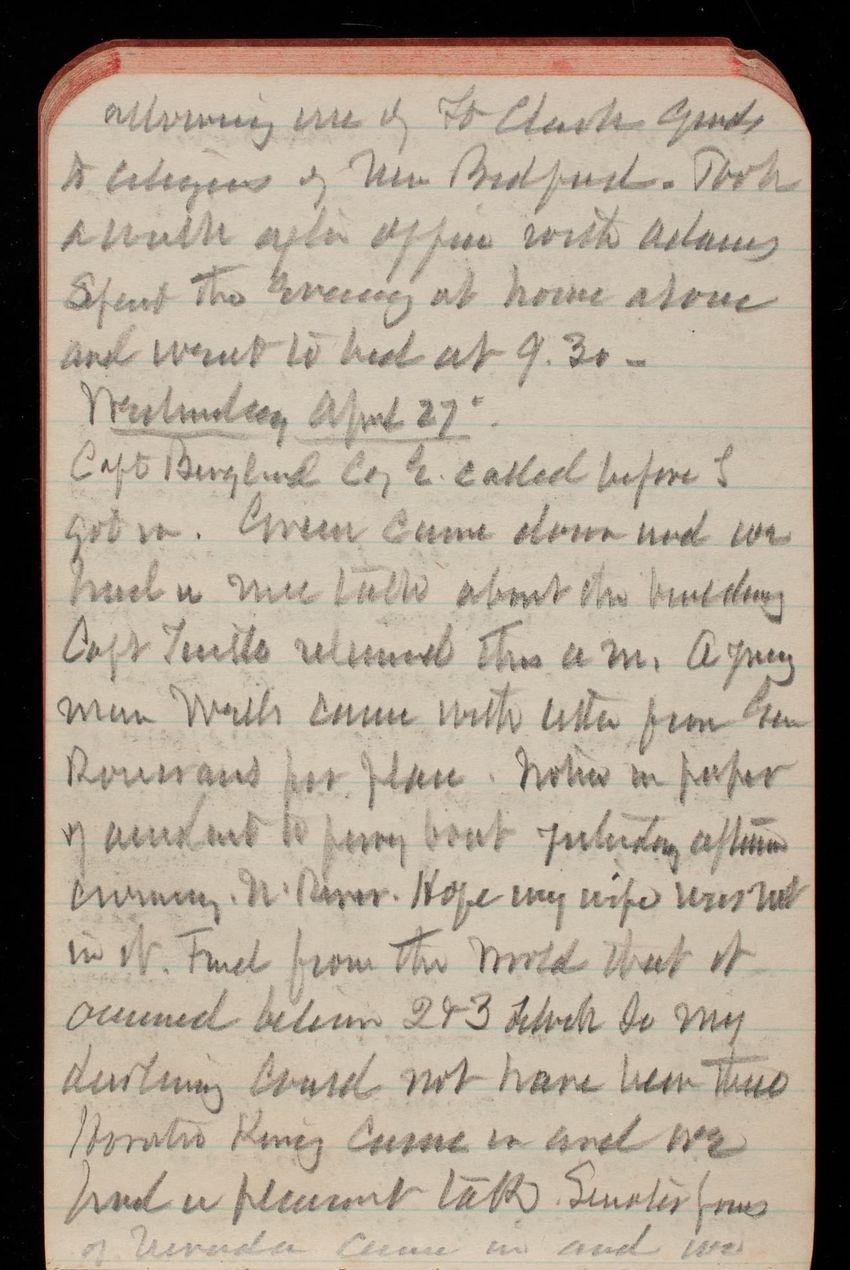 allowing use of Ft Clark Guns
to citizens of New Bedford. Took
a walk after office with Adams
Spent the Evening at home alone
and went to bed at 9.30 -
Wednesday April 27".
Capt Berglund Eng E. called before I
got in. Green came down and we
had a nice talk about the building
Capt Turtle returned this a m. A young
man Wells came with letter from Gen
Rosecrans for place. Notice in paper
of accident to ferry boat yesterday
N. River. Hope my wife was not
in it. Find from the World that it
occurred between 2 & 3 Oclock So my
darling could not have been there
Horatio King came in and we
had a pleasant talk. Senator Jones
of Nevada came in and we